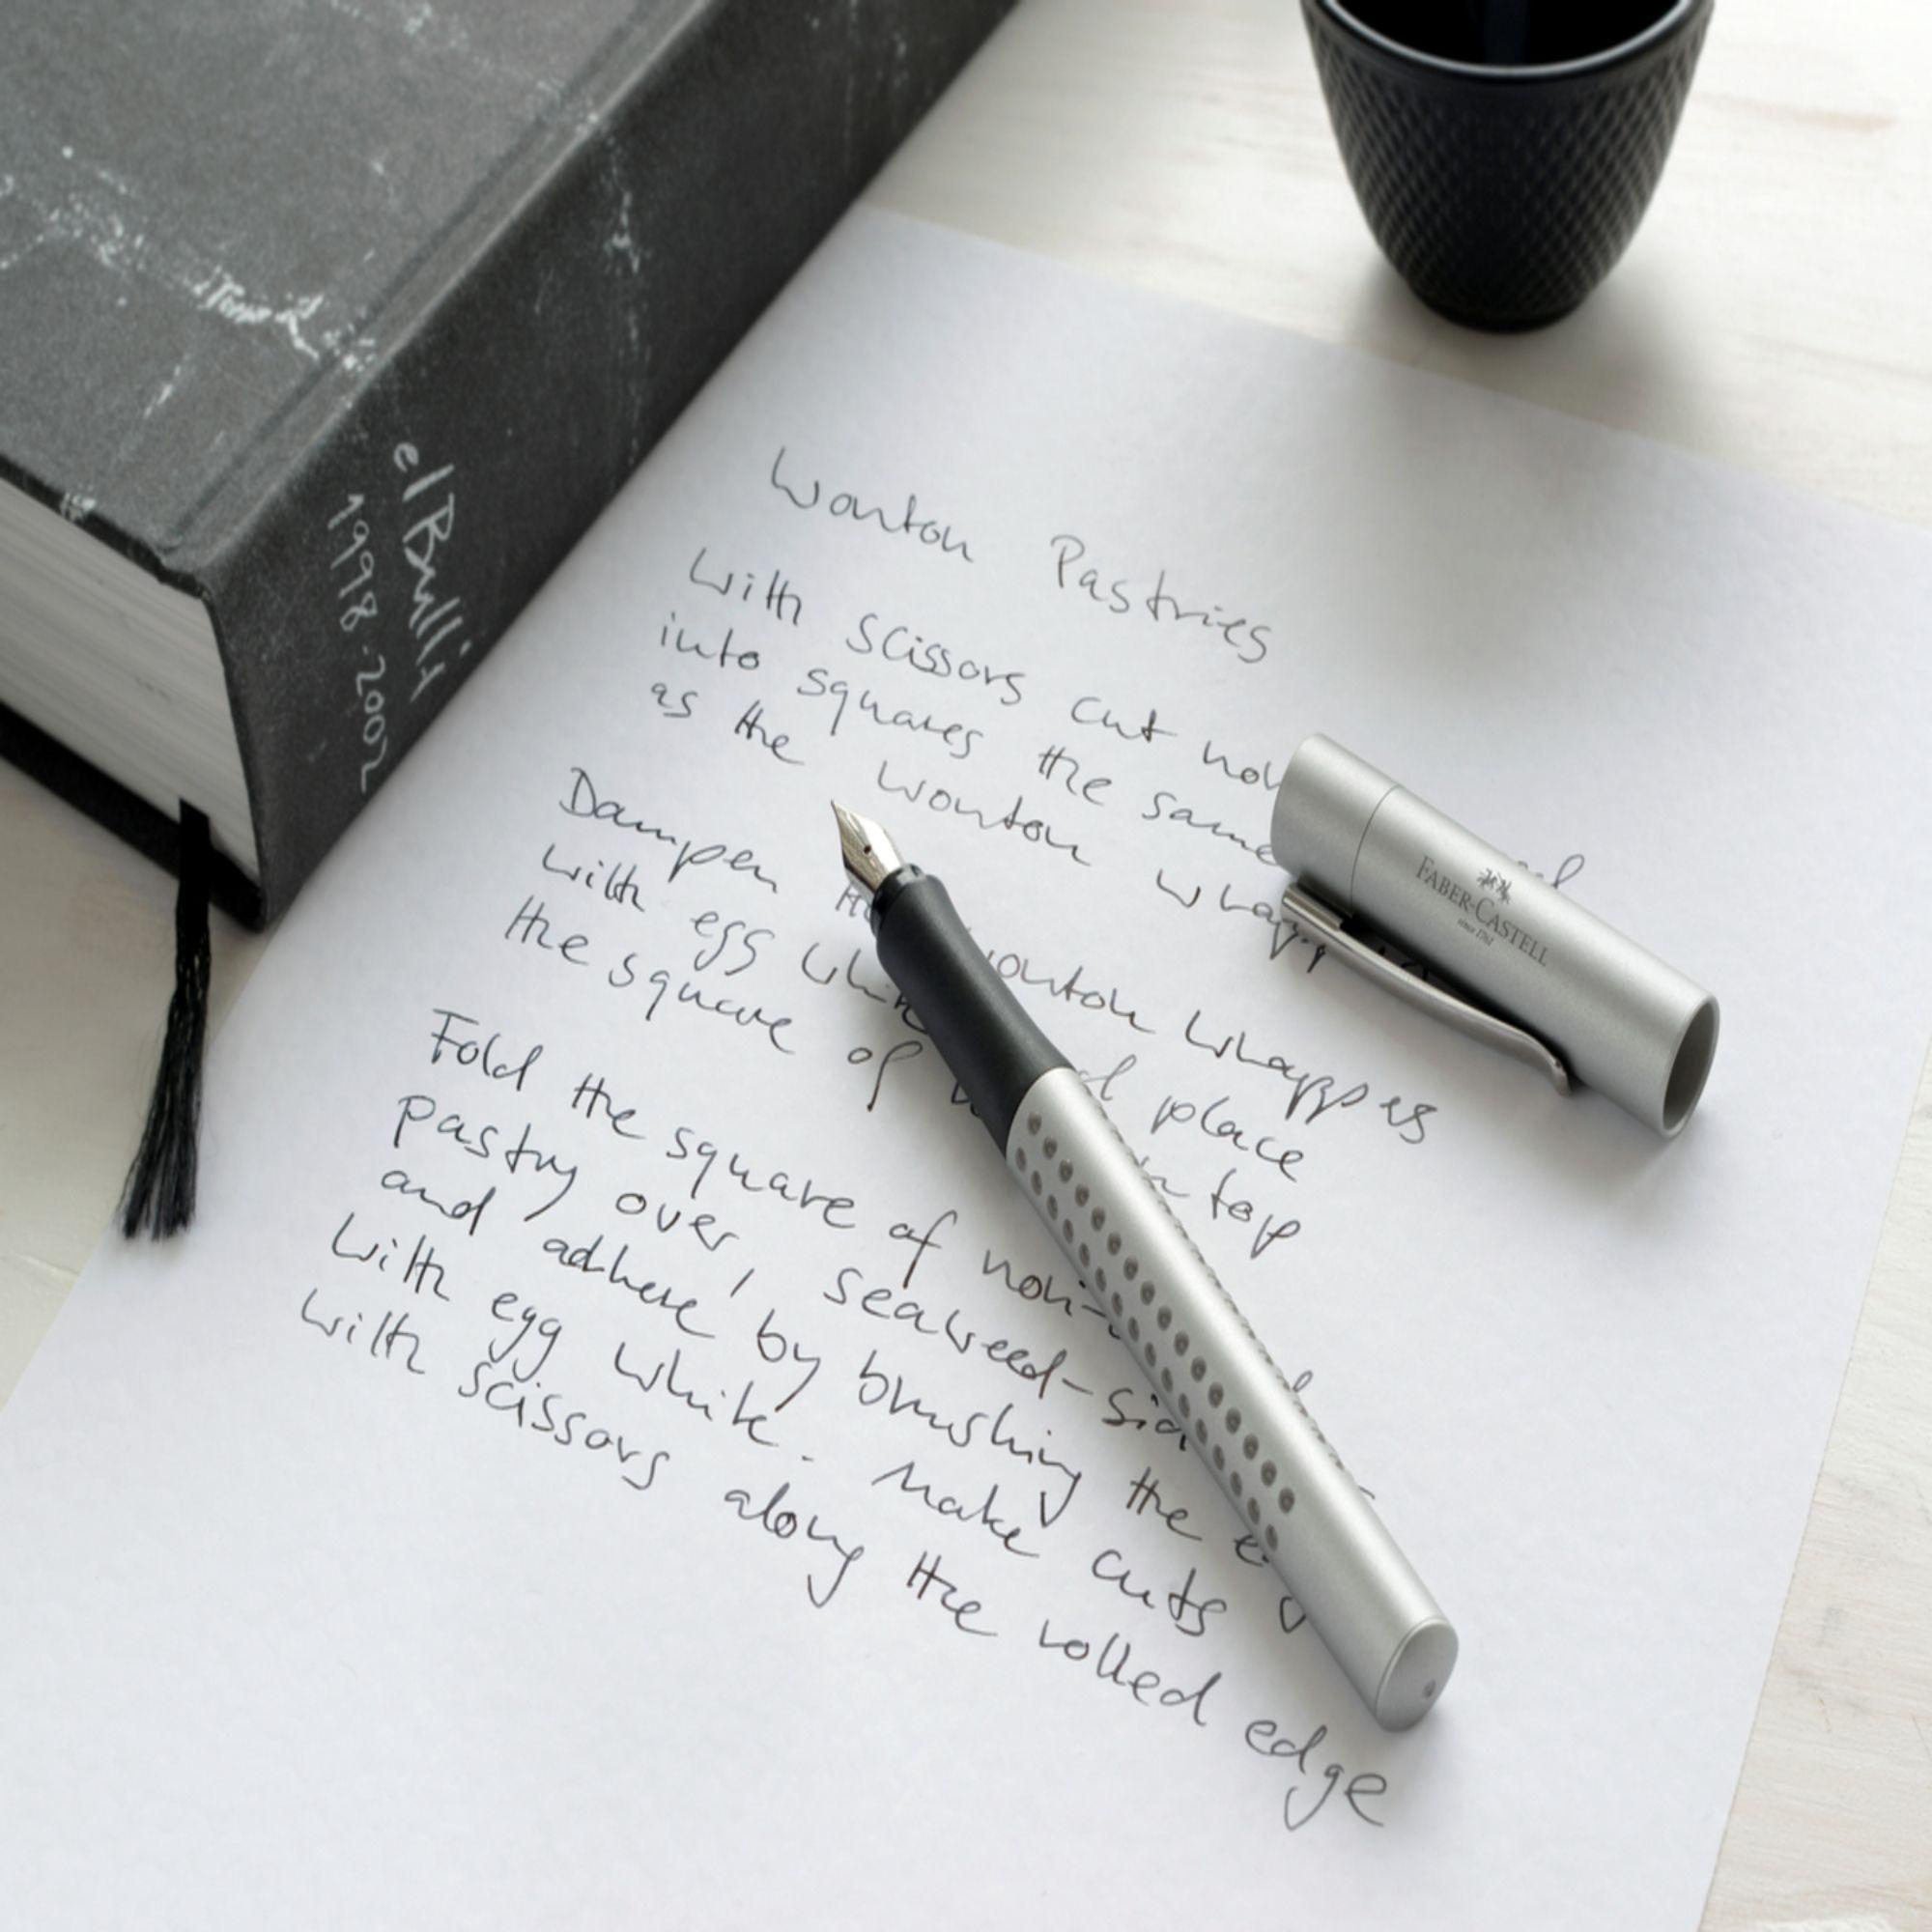 elBulli
1998-2002
Wonton Pastries
With scissors cut
into squares the same
as the wonton
Dampen wonton wrappers
with egg white place
the square of top
Fold the square of
pastry over, seaweed-
and adhere by brushing the
with egg white. Make cuts
with scissors along the rolled edge
FABER-CASTELL
since 1761